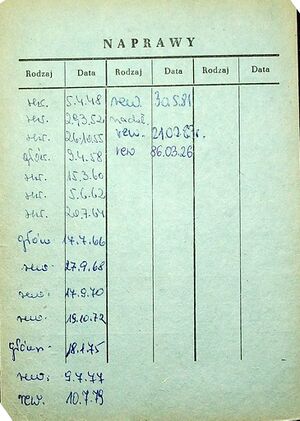 NAPRAWY
Rodzaj Data Rodzaj Data Rodzaj Data
rew. 5.4.48 rew. 30.5.81
rew. 29.3.52
rew. 26.10.55 rew. 21.02.83r.
główn. 9.4.58 rew 86.03.26
rew. 15.3.60
rew. 5.6.62
rew. 20.7.64
główn. 14.7.66
rew. 27.9.68
rew. 17.9.70
rew. 19.10.72
główn. 18.1.75
rew. 9.7.77
rew. 10.7.79